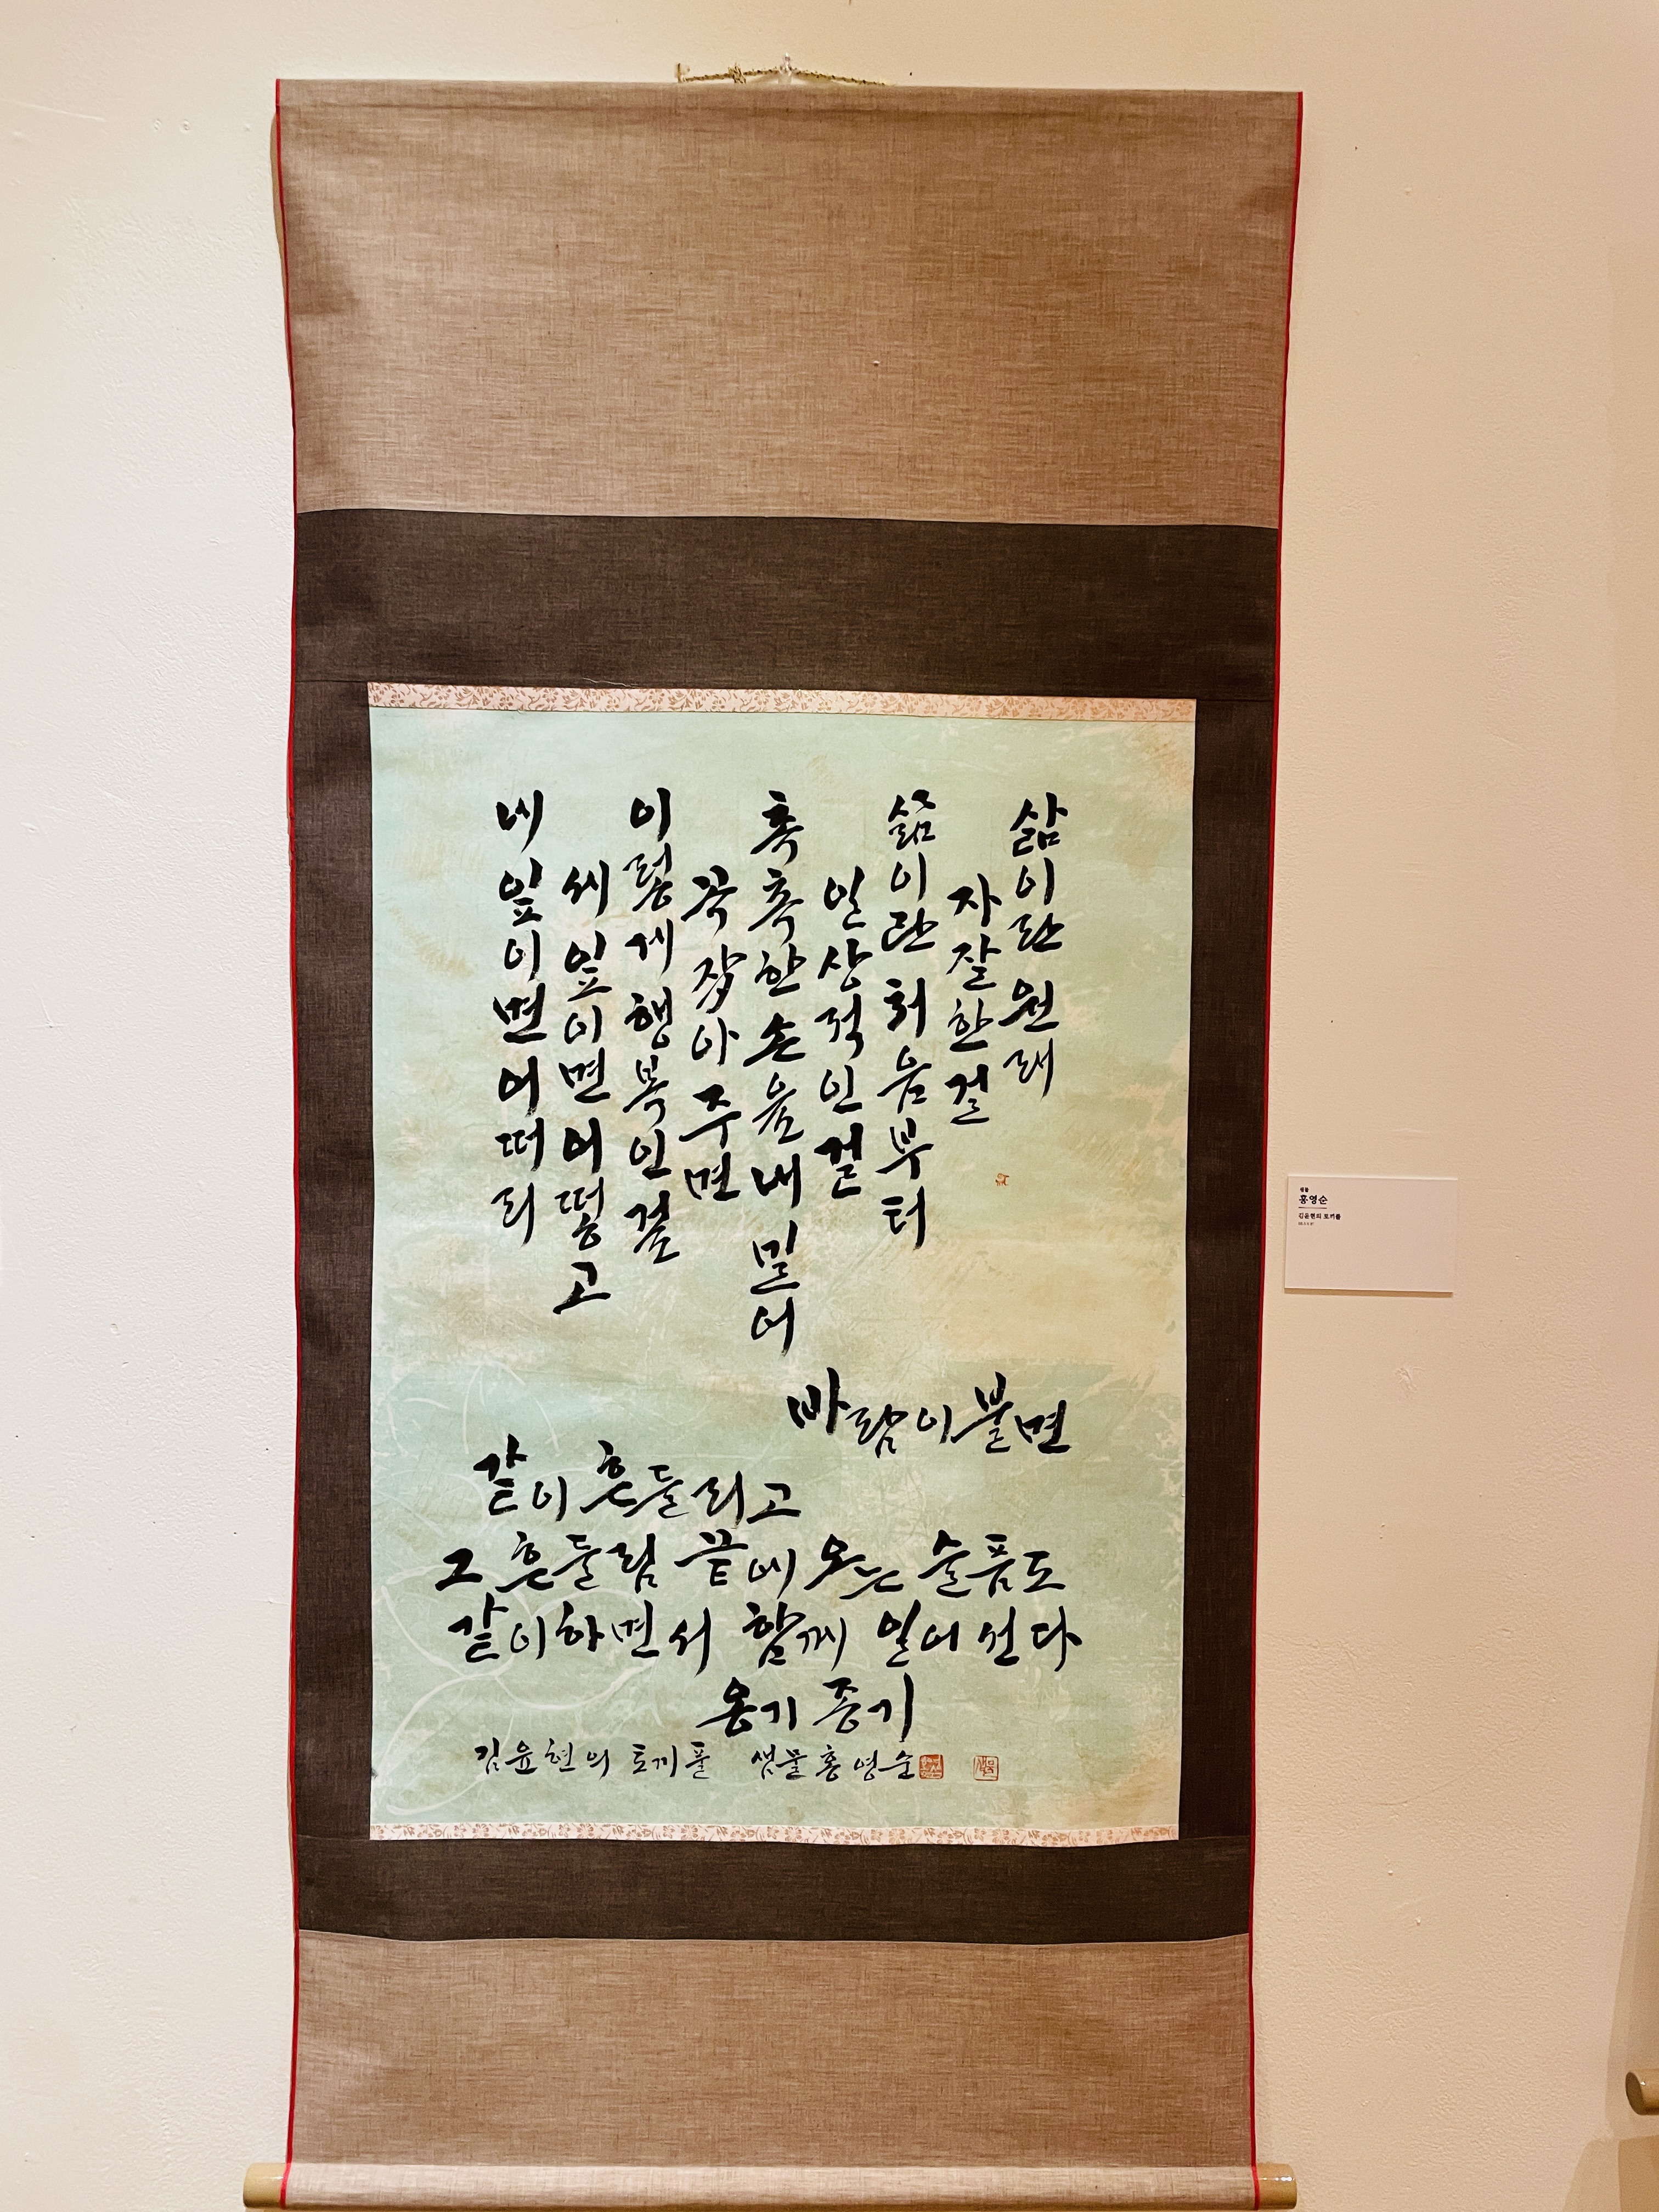 삶이란 원래
자잘한 걸
삶이란 처음부터
일상적인 걸
촉촉한 손을 내밀어
꼭 잡아주면
이렇게 행복인 걸
세 잎이면 어떻고
네 잎이면 어떠리
바람이 불면
같이 흔들리고
그 흔들림 끝에 오는 슬픔도
같이하면서 함께 일어선다
옹기종기
김윤현의 토끼풀 샘물 홍영순
샘물
홍영순
김윤현의 토끼풀